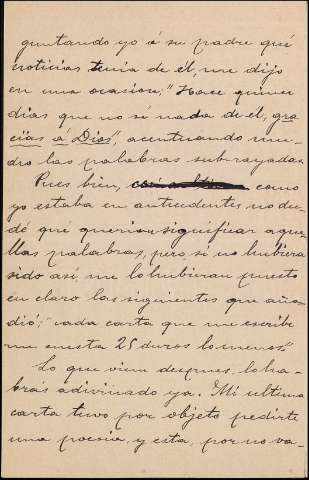 guntando yo á su padre qué
noticias tenia de él, me dijo
en una ocasion; "Hace quince
dias que no sé nada de él, gra
cias á Dios", acentuando mu-
cho las palabras subrayadas.
Pues bien, como
yo estaba en antecedentes no du-
dé que querian significar aque-
llas palabras, pero, si no hubiera
sido así, me lo hubieran puesto
en claro las siguientes que aña-
dió; "cada carta que me escribe
me cuesta 25 duros lo menos."
Lo que viene despues, lo ha-
brás adivinado ya. Mi ultima
carta tuvo por objeto pedirte
una poesia, y esta, por no va-